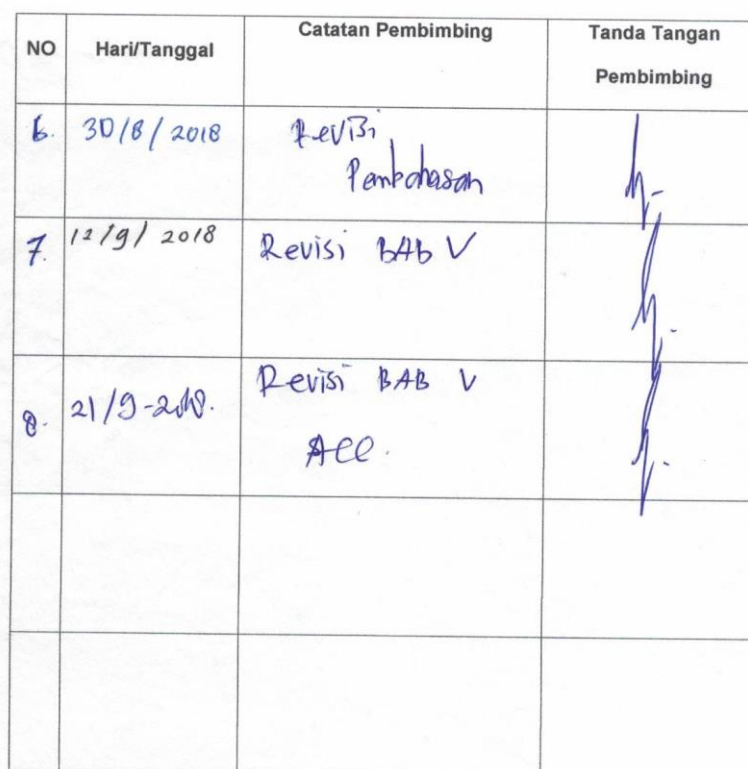 NO Hari/Tanggal Catatan Pembimbing Tanda Tangan
Pembimbing
6. 30/8/2018 Revisi
Pembahasan
7. 12/9/2018 Revisi BAB V
8. 21/9-2018. Revisi BAB V
ACC.